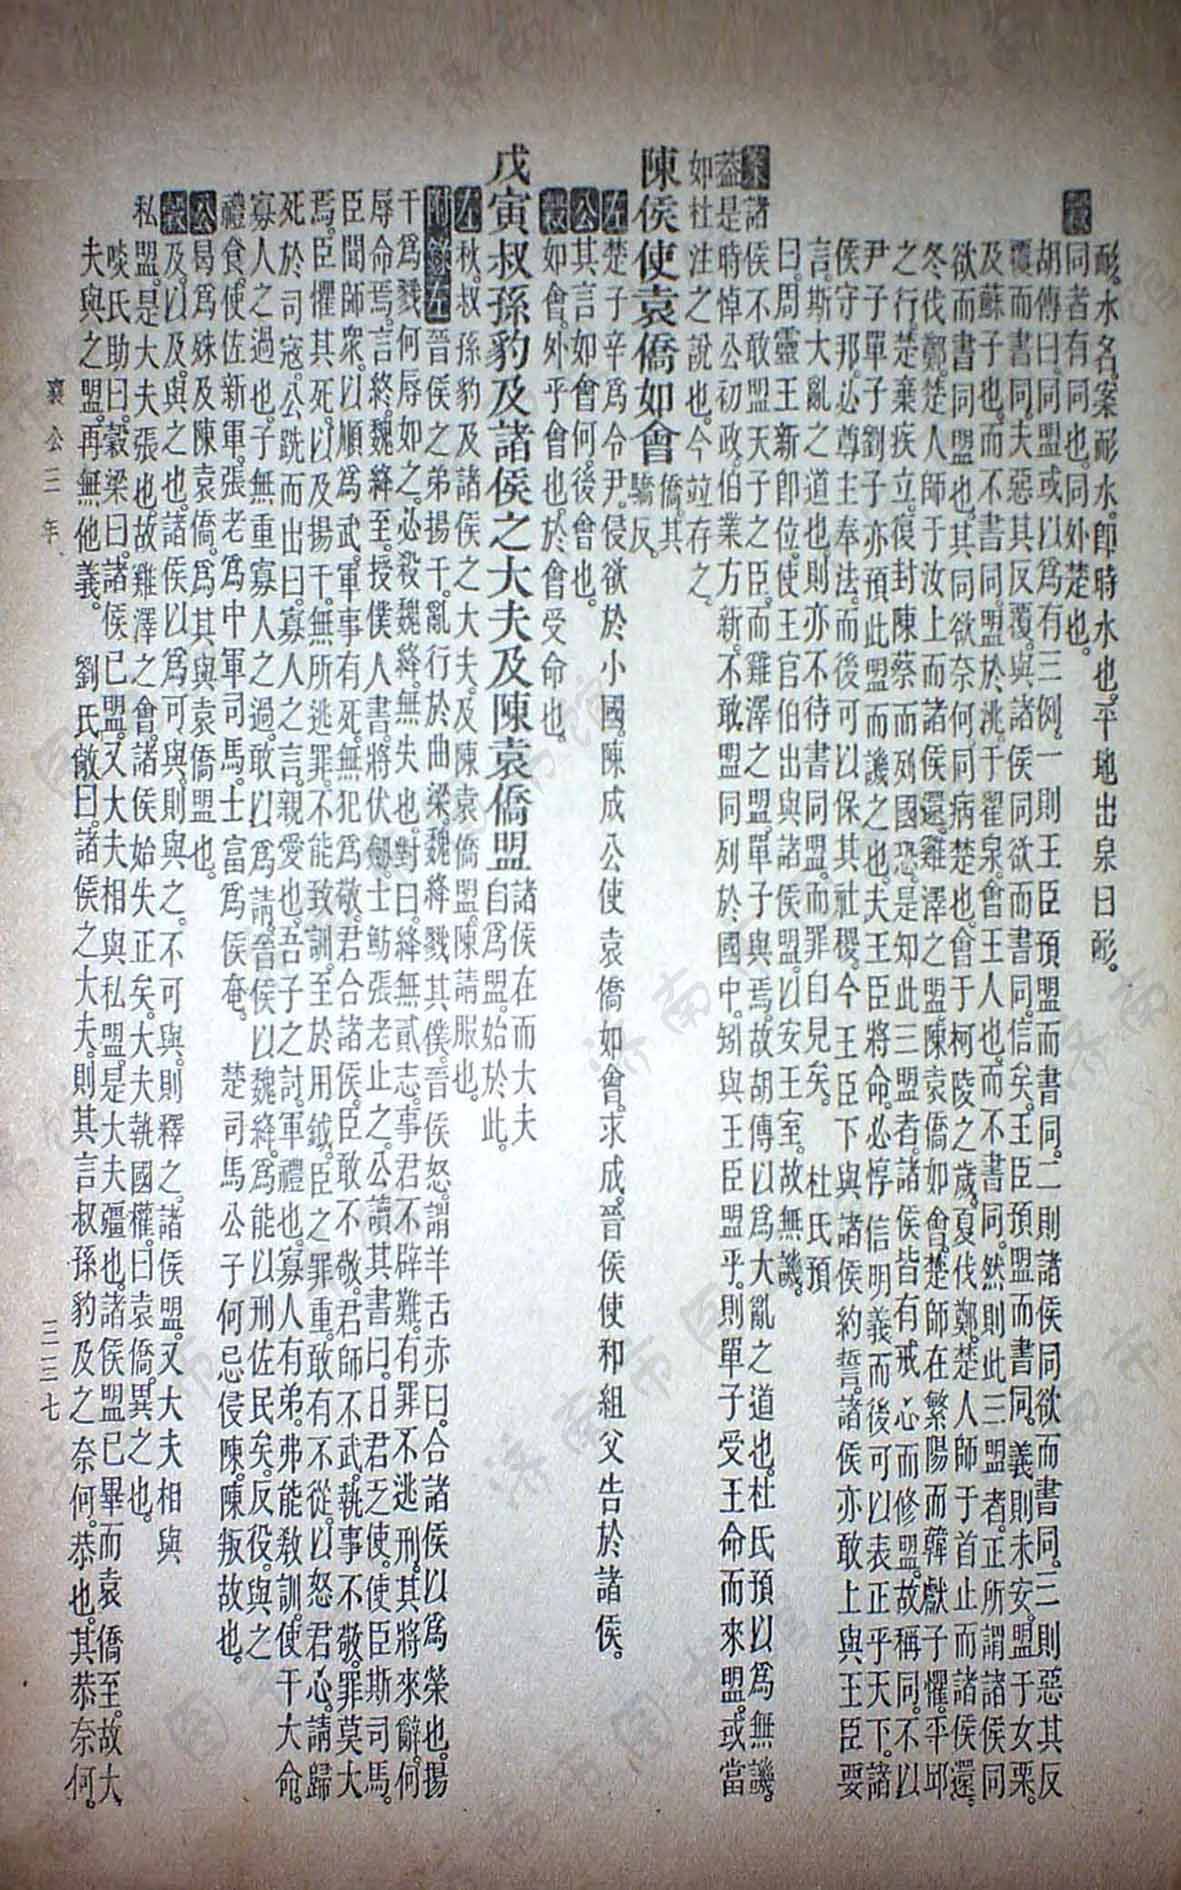 耏水名案耏水即時水也平地出泉曰耏
穀同者有同也同外楚也
胡傳曰同盟或以爲有三例一則王臣預盟而書同二則諸侯同欲而書同三則惡其反
覆而書同夫惡其反覆與諸侯同欲而書同信矣王臣預盟而書同義則未安盟于女栗
及蘇子也而不書同盟於洮于翟泉會王人也而不書同然則此三盟者正所謂諸侯同
欲而書同盟也其同欲奈何同病楚也會于柯陵之歲夏伐鄭楚人師于首止而諸侯還
冬伐鄭楚人師于汝上而諸侯還雞澤之盟陳袁僑如會楚師在繁陽而韓獻子懼平邱
之行楚棄疾立復封陳蔡而列國恐是知此三盟者諸侯皆有戒心而修盟故稱同不以
尹子單子劉子亦預此盟而譏之也夫王臣將命必惇信明義而後可以表正乎天下諸
侯守邦必尊主奉法而後可以保其社稷今王臣下與諸侯約誓諸侯亦敢上與王臣要
言斯大亂之道也則亦不待書同盟而罪自見矣 杜氏預
曰周靈王新卽位使王官伯出與諸侯盟以安王室故無譏
案諸侯不敢盟天子之臣而雞澤之盟單子與焉故胡傳以爲大亂之道也杜氏預以爲無譏
蓋是時悼公初政伯業方新不敢盟同列於國中矧與王臣盟乎則單子受王命而來盟或當
如杜注之說也今竝存之
陳侯使袁僑如會 僑其驕反
左楚子辛爲令尹侵欲於小國陳成公使袁僑如會求成晉侯使和組父告於諸侯
公其言如會何後會也
穀如會外乎會也於會受命也
戊寅叔孫豹及諸侯之大夫及陳袁僑盟 諸侯在而大夫自爲盟始於此
左秋叔孫豹及諸侯之大夫及陳袁僑盟陳請服也
附錄左晉侯之弟揚干亂行於曲梁魏絳戮其僕晉侯怒謂羊舌赤曰合諸侯以爲榮也揚
干爲戮何辱如之必殺魏絳無失也對曰絳無貳志事君不辟難有罪不逃刑其將來辭何
辱命焉言終魏絳至授僕人書將伏劔士魴張老止之公讀其書曰日君乏使使臣斯司馬
臣聞師衆以順爲武軍事有死無犯爲敬君合諸侯臣敢不敬君師不武執事不敬罪莫大
焉臣懼其死以及揚干無所逃罪不能致訓至於用鉞臣之罪重敢有不從以怒君心請歸
死於司寇公跣而出曰寡人之言親愛也吾子之討軍禮也寡人有弟弗能敎訓使干大命
寡人之過也子無重寡人之過敢以爲請晉侯以魏絳爲能以刑佐民矣反役與之
禮食使佐新軍張老爲中軍司馬士富爲侯奄 楚司馬公子何忌侵陳陳叛故也
公曷爲殊及陳袁僑爲其與袁僑盟也
穀及以及與之也諸侯以爲可與則與之不可與則釋之諸侯盟又大夫相與
私盟是大夫張也故雞澤之會諸侯始失正矣大夫執國權曰袁僑異之也
啖氏助曰穀梁曰諸侯已盟又大夫相與私盟是大夫彊也諸侯盟已畢而袁僑至故大
夫與之盟再無他義 劉氏敞曰諸侯之大夫則其言叔孫豹及之奈何恭也其恭奈何
襄公三年 三三七